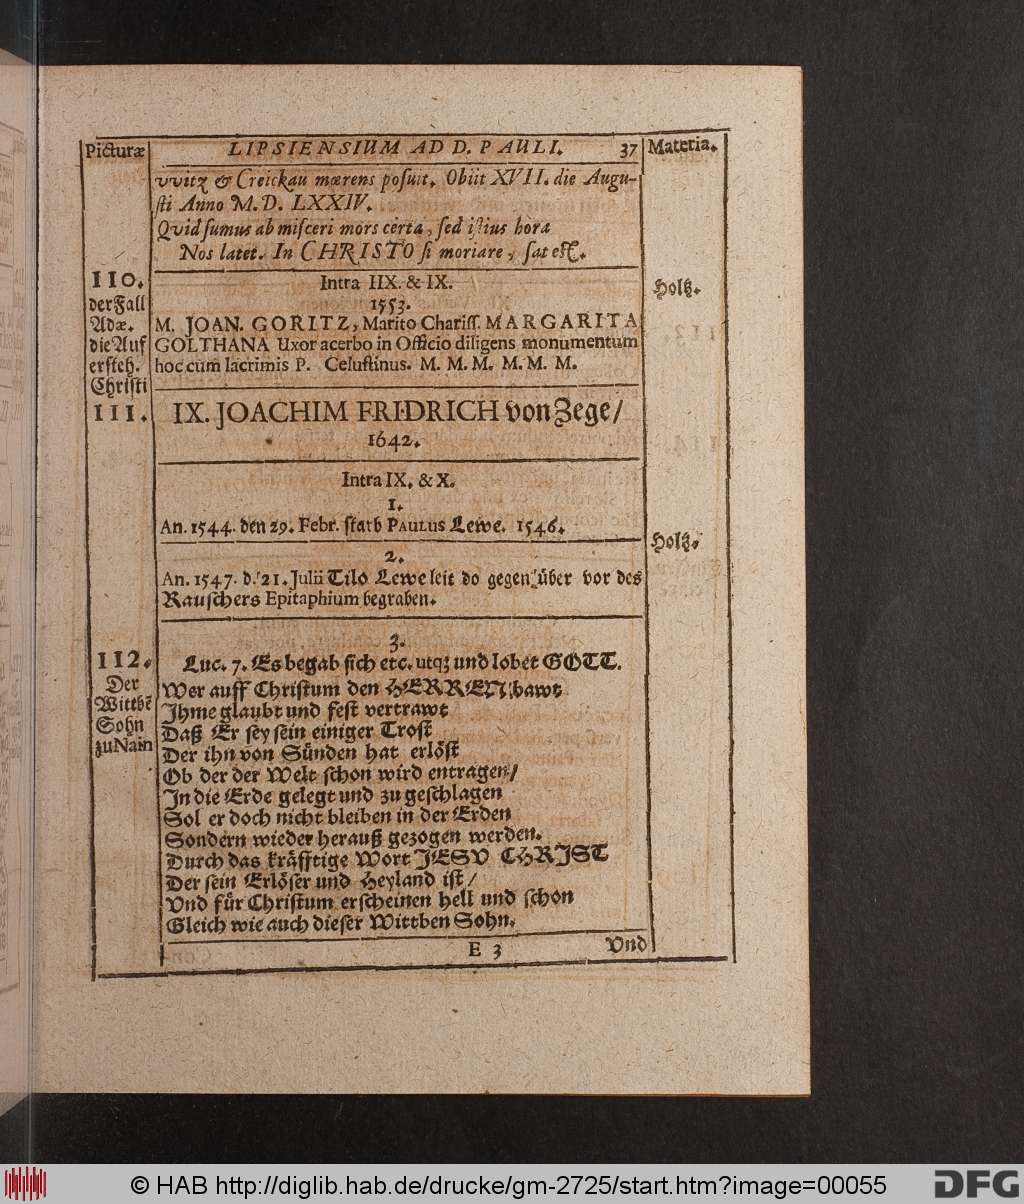 Picturæ LIPSIENSIUM AD D. PAULI. 37 Materia.
vvitz & Creickau mœrens posuit. Obiit XVII. die Augu-
sti Anno M. D. LXXIV.
Qvid sumus ab misceri mors certa, sed istius hora
Nos latet. In CHRISTO si moriare, sat est.
110.
der Fall
Adæ.
die Auf
ersteh.
Christi
Intra IIX. & IX.
1553.
M. JOAN. GORITZ, Marito Chariss. MARGARITA
GOLTHANA Uxor acerbo in Officio diligens monumentum
hoc cum lacrimis P. Celustinus. M. M. M. M. M. M.
Holtz.
111. IX. JOACHIM FRIDRICH von Zege/
1642.
Intra IX. & X.
1.
An. 1544. den 29. Febr. starb PAULUS Lewe. 1546.
Holtz.
2.
An. 1547. d. 21. Julii Tilo Lewe leit do gegen über vor des
Rauschers Epitaphium begraben.
112.
Der
Wittbẽ
Sohn
zu Nain
3.
Luc. 7. Es begab sich etc. utqꝫ und lobet GOTT.
Wer auff Christum den HERREN bawt
Ihme glaubt und fest vertrawt
Daß Er sey sein einiger Trost
Der ihn von Sünden hat erlöst
Ob der der Welt schon wird entragen/
In die Erde gelegt und zu geschlagen
Sol er doch nicht bleiben in der Erden
Sondern wieder herauß gezogen werden.
Durch das kräfftige Wort JESV CHRIST
Der sein Erlöser und Heyland ist/
Vnd für Christum erscheinen hell und schon
Gleich wie auch dieser Wittben Sohn.
E 3 Vnd
© HAB http://diglib.hab.de/drucke/gm-2725/start.htm?image=00055
DFG